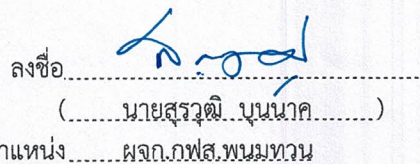 ลงชื่อ
( นายสุรวุฒิ บุนนาค )
าแหน่ง ผจก.กฟส.พนมทวน